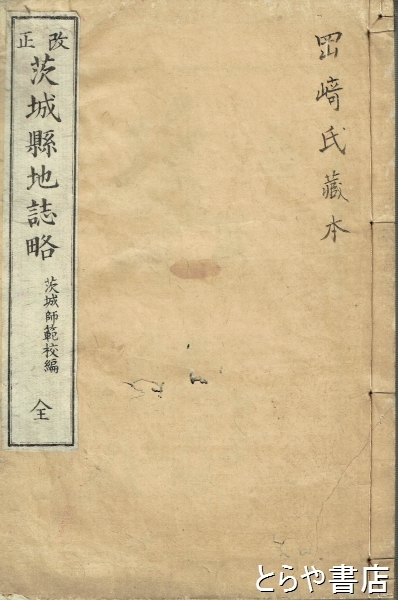 岡﨑氏藏本
改正
茨城縣地誌略
茨城師範校編
全
とらや書店